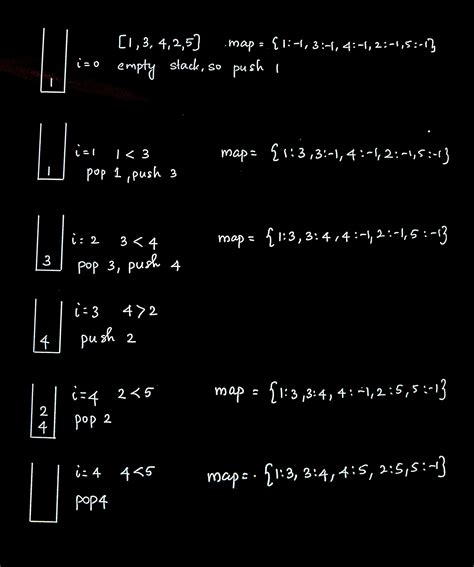 [1, 3, 4, 2, 5] map = {1:-1, 3:-1, 4:-1, 2:-1, 5:-1}
i=0 empty stack, so push 1
1
i=1 1 < 3 map= {1:3, 3:-1, 4:-1, 2:-1, 5:-1}
1
pop 1, push 3
i=2 3 < 4 map = {1:3, 3:4, 4:-1, 2:-1, 5:-1}
3
pop 3, push 4
i=3 4>2
4
push 2
i=4 2<5 map = {1:3, 3:4, 4:-1, 2:5, 5:-1}
2
4
pop 2
i=4 4<5 map= {1:3, 3:4, 4:5, 2:5, 5:-1}
pop4